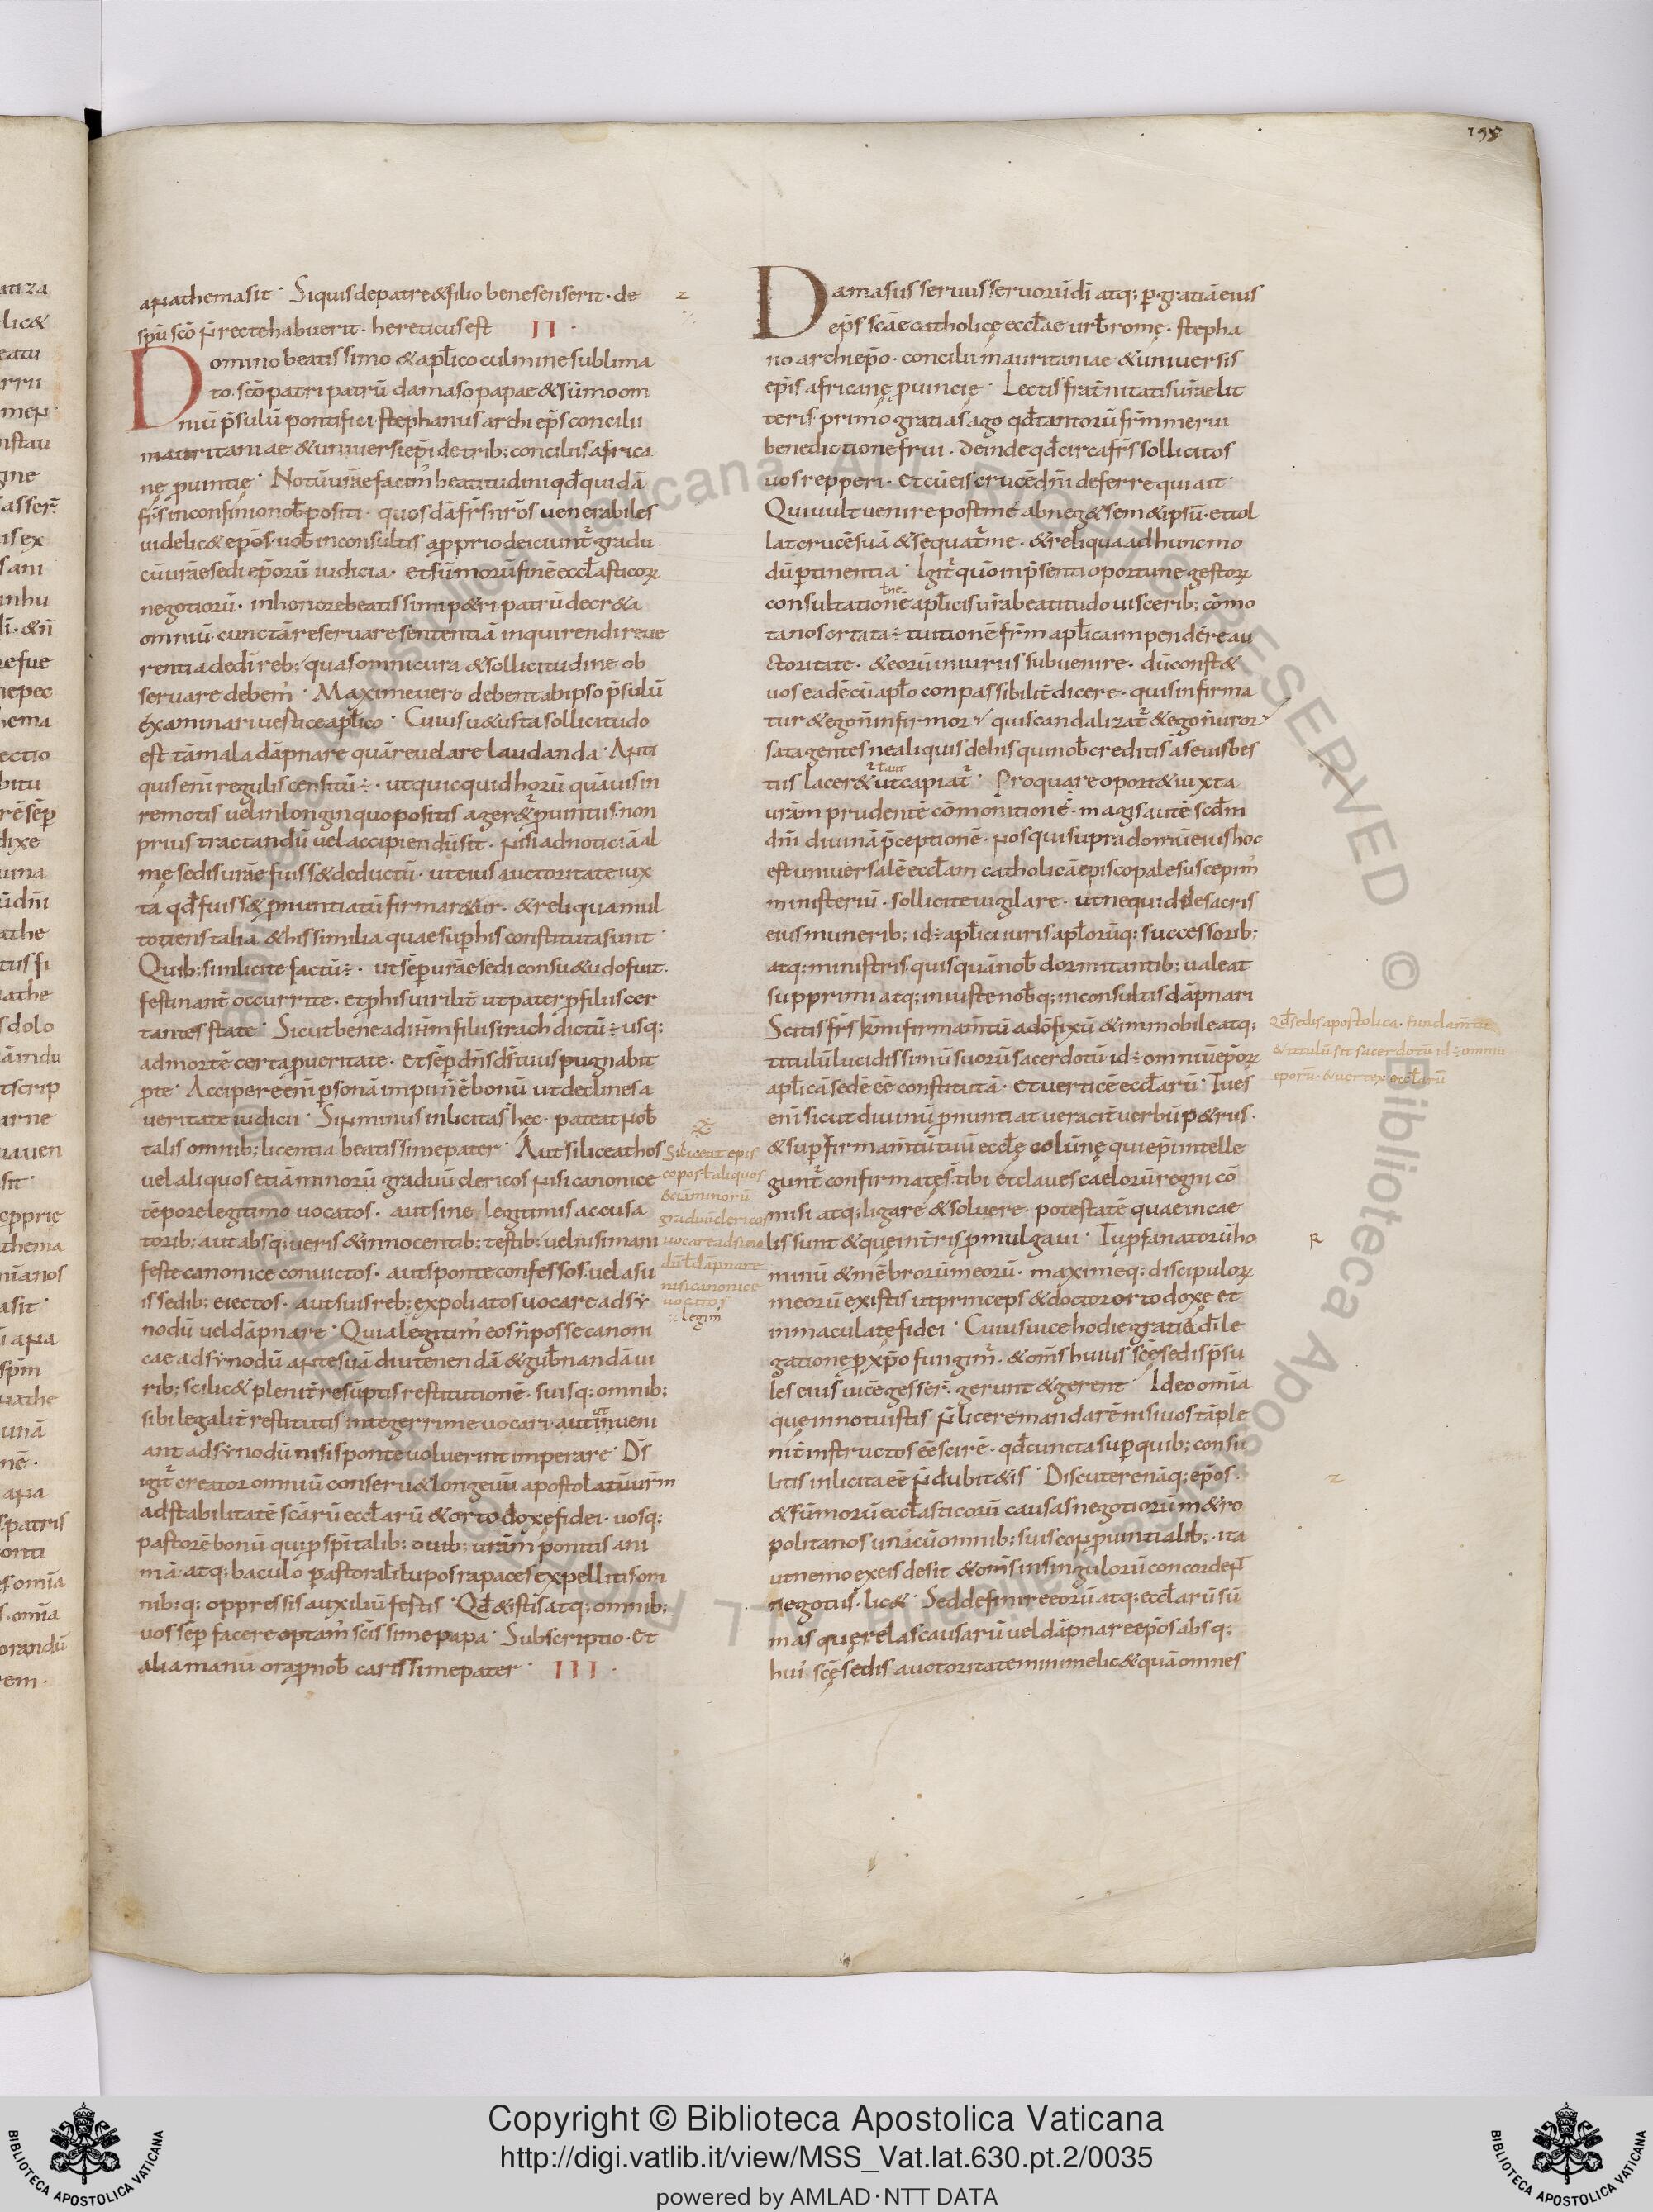 195
anathema sit. Siquis de patre & filio bene senserit. de
spū scō n̄ recte habuerit. hereticus est II.
Domino beatissimo & apl̄ico culmine sublima
to. scō patri patrū damaso papae & sūmo om
niū p̄sulū pontifici. stephanus archiep̄s concilii
mauritaniae & universi ep̄i de trib; conciliis africa
nę ꝓvintię. Notū vr̄ae facim' beatitudini qd̄ quidā
fr̄s in confinio nob̄ positi. quosdā fr̄s nr̄os venerabiles
videlic& ep̄os. vob̄ inconsultis a ꝓprio deiciunt᷑ gradu.
cū vr̄ae sedi ep̄orū iudicia. et sūmorū finē eccl̄asticoꝝ
negotiorū. in honore beatissimi p&ri patrū decr&a
omniū cunctā reservare sententiā inquirendi reve
rentia dedi reb; quas omni cura & sollicitudine ob
servare debem'. Maxime vero debent ab ipso p̄sulū
examinari vestice apl̄ico. Cuius v&usta sollicitudo
est tā mala dāpnare quā relevare laudanda. Anti
quis enī regulis censitū ÷. ut quicquid horū quāvis in
remotis vel in longinquo positis ager&᷑ ꝓvintiis. non
prius tractandū vel accipiendū sit. nisi ad noticiā al
mę sedis vr̄ae fuiss& deductū. ut eius auctoritate iux
ta qd̄ fuiss& ꝓnuntiatū firmar&ur. & reliqua mul
totiens talia & his similia quae suꝑ his constituta sunt.
Quib; si inlicite factū ÷. ut sēꝑ vr̄ae sedi consu&udo fuit.
festinant̄ occurrite. et ꝓ his virilit̄ ut pater ꝓ filiis cer
tantes state. Sicut bene ad itim filii sirach dictū ÷ usq;
ad mortē certa ꝓ veritate. et sēꝑ dn̄s ds̄ tuus pugnabit
ꝓ te. Accipere enī ꝑsonā impii n̄ ē bonū ut declines a
veritate iudicii. Si n̄ minus inlicitas hęc. pateat nob̄
talis omnib; licentia beatissime pater. Aut si lice athos
vel aliquos etiā minorū graduū clericos nisi canonice
tēpore legitimo vocatos. aut sine legitimis accusa
torib; aut absq; veris & innocentib; testib; vel nisi mani
feste canonice convictos. aut sponte confessos. vel a su
is sedib; eiectos. aut suis reb; expoliatos vocare ad sy
nodū vel dāpnare. Quia legitim' eos n̄ posse canoni
cae ad synodū ante suā diu tenendā & gub̄nandā vi
rib; scilic& plenit̄ resūptis restitutionē. suisq; omnib;
sibi legalit̄ restitutis integerrime vocari. aut in veni
ant ad synodū nisi sponte voluerint imperare. Ds̄
igit᷑ creator omniū conserv& longevū apostolatū vr̄m
ad stabilitatē scārū eccl̄arū & ortodoxę fidei. vosq;
pastorē bonū qui ꝓ spītalib; ovib; vr̄am ponitis ani
mā. atq; baculo pastorali lupos rapaces expellitis om
nib; q; oppressis auxiliū festis. Qd̄ & istis atq; omnib;
vos sēꝑ facere optam' scīssime papa. Subscriptio. et
alia manu ora ꝓ nob̄ carissime pater. III.
Si liceat epis
copos t̄ aliquos
& iā minorū
graduū clericos
vocare ad sino
dū t̄ dāpnare
nisi canonice
vocatos
legim'
Damasus servus servorū dī atq; ꝑ gratiā eius
ep̄s scāe catholicę eccl̄ae urb̄ romę. stepha
no archiep̄o. concilii mauritaniae & universis
ep̄is africanę ꝓvincię. Lectis frat̄nitatis vr̄ae lit
teris. primo gratias ago qd̄ tantorū fr̄m merui
benedictione frui. Deinde qd̄ circa fr̄s sollicitos
vos repperi. et cū eis crucē dn̄i deferre qui ait.
Qui vult venire post me abneg& sem&ipsū. et tol
lat crucē suā & sequat᷑ me. & reliqua ad hunc mo
dū ꝑtinentia. Igit᷑ quō in p̄senti oportune gestoꝝ
consultationē apl̄icis vr̄a beatitudo viscerib; cōmo
ta nos ortata ÷ tuitionē fr̄m apl̄ica inpendere au
ctoritate. & eorū iniuriis subvenire. dū const&
vos eadē cū apl̄o conpassibilit̄ dicere. quis infirma
tur & ego n̄ infirmor. quis scandalizat᷑ & ego n̄ uror.
satagentes ne aliquis de his qui nob̄ crediti s̄ a seuis bes
tiis lacer&᷑ ut capiat᷑. Proquare oport& iuxta
vr̄am prudentē cōmonitionē. magis autē scd̄m
dn̄i divinā p̄ceptionē. nos qui supra domū eius hoc
est universalē eccl̄am catholicā episcopale suscepim'
ministeriū. sollicite vigilare. ut ne quid de sacris
eius munerib; id ÷ apl̄ici iuris apl̄orūq; successorib;
atq; ministris. quisquā nob̄ dormitantib; valeat
supprimi atq; iniuste nob̄q; inconsultis dāpnari
Scitis fr̄s km̄i firmam̄tū a dō fixū & immobile atq;
titulū lucidissimū suorū sacerdotū id ÷ omniū ep̄oꝝ
apl̄icā sedē eē constitutā. et verticē eccl̄arū. Tu es
enī sicut divinū ꝓnuntiat veracit̄ verbū p&rus.
& suꝑ firmam̄tū tuū eccl̄ę colūnę qui ep̄i intelle
gunt᷑ confirmatę s̄. tibi et claves caelorū regni cō
misi atq; ligare & solvere potestatē quae in cae
lis sunt & quę in t̄ris ꝓmulgavi. Tu ꝓfanatorū ho
minū & mēbrorū meorū. maximeq; discipuloꝝ
meorū existis ut princeps & doctor ortodoxę et
inmaculatę fidei. Cuius vice hodie gratia dī le
gatione ꝓ xp̄o fungim᷑. & om̄s huius scę sedis p̄su
les eius vicē gesser̄. gerunt & gerent. Ideo om̄ia
que innotuistis n̄ licere mandarē nisi vos tā ple
nit̄ instructos eē scirē. qd̄ cuncta suꝑ quib; consu
litis inlicita eē n̄ dubit&is. Discutere nāq; ep̄os.
& sūmorū eccl̄asticorū causas negotiorū m&ro
politanos unā cū omnib; suis coꝓvintialib;. ita
ut nemo ex eis desit & om̄s in singulorū concordent
negotiis. lic&. Sed definire eorū atq; eccl̄arū sū
mas querelas causarū vel dāpnare ep̄os absq;
hui' scę sedis auctoritate minime lic& quā omnes
Qd̄ sedis apostolica. fundam̄tū
& titulū sit sacerdotū id ÷ omniū
eporū. & vertex eccl̄arū
R
Copyright © Biblioteca Apostolica Vaticana
http://digi.vatlib.it/view/MSS_Vat.lat.630.pt.2/0035
powered by AMLAD·NTT DATA
BIBLIOTECA APOSTOLICA VATICANA
BIBLIOTECA APOSTOLICA VATICANA